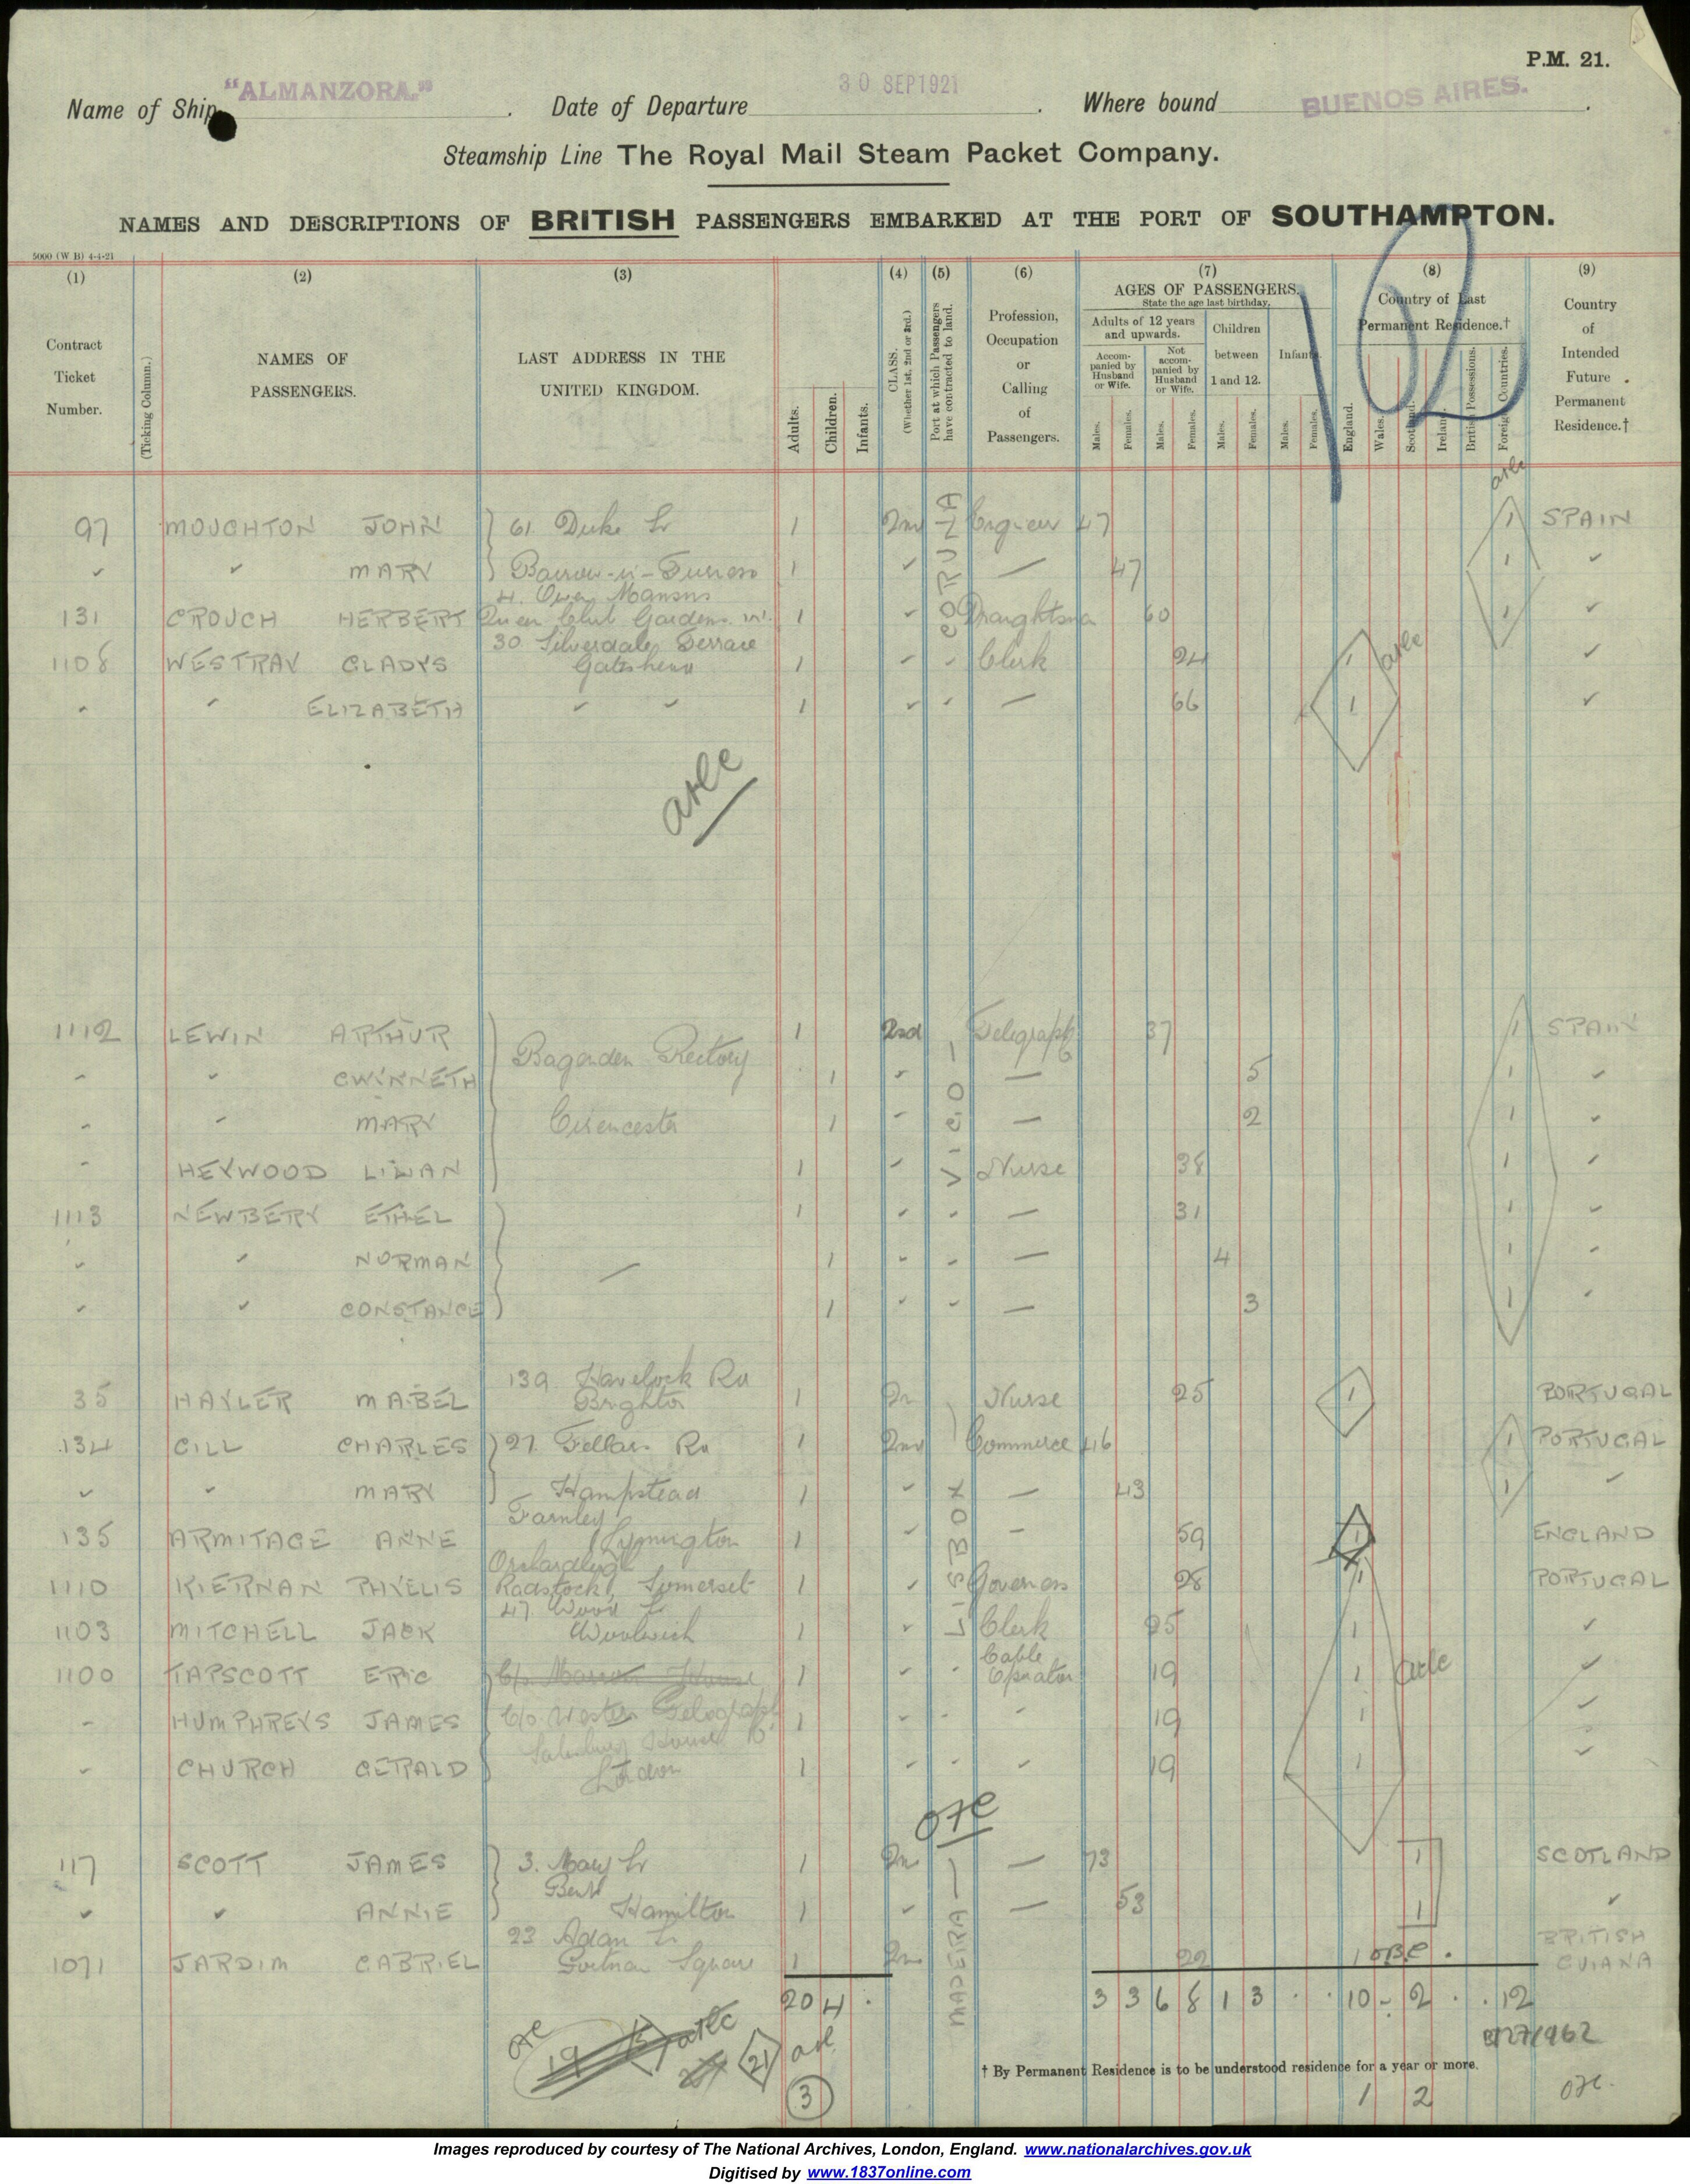 P.M. 21.
Name of Ship "ALMANZORA." Date of Departure 30 SEP 1921 . Where bound BUENOS AIRES.
Steamship Line The Royal Mail Steam Packet Company.
NAMES AND DESCRIPTIONS OF BRITISH PASSENGERS EMBARKED AT THE PORT OF SOUTHAMPTON.
5000 (W B) 4-4-21
(1) (2) (3) (4) (5) (6) (7) (8) (9)
Contract Ticket Number.
(Ticking Column.)
NAMES OF PASSENGERS.
LAST ADDRESS IN THE UNITED KINGDOM.
Adults. Children. Infants.
CLASS. (Whether 1st, 2nd or 3rd.)
Port at which Passengers have contracted to land.
Profession, Occupation or Calling of Passengers.
AGES OF PASSENGERS.
State the age last birthday.
Adults of 12 years and upwards. Children between 1 and 12. Infants.
Accompanied by Husband or Wife. Not accompanied by Husband or Wife.
Males. Females. Males. Females. Males. Females. Males. Females.
Country of Last Permanent Residence.†
England. Wales. Scotland. Ireland. British Possessions. Foreign Countries.
Country of Intended Future Permanent Residence.†
97 MOUGHTON JOHN 61. Duke St 1 2nd CORUNA Engineer 47 1 SPAIN
MARY Barrow-in-Furness 1 — 47 1
4. Mansns
131 CROUCH HERBERT Queen Club Gardens W. 1 Draughtsman 60 1
30 Silverdale Terrace
1108 WESTRAY GLADYS Gateshead 1 Clerk 24 1
ELIZABETH 1 — 66 1
1112 LEWIN ARTHUR 1 2nd VIGO Telegraph 37 1 SPAIN
Bagenden Rectory
GWINNETH 1 — 5 1
MARY Cirencester 1 — 2 1
HEYWOOD LILIAN 1 Nurse 38 1
1113 NEWBERY ETHEL 1 — 31 1
NORMAN — 1 — 4 1
CONSTANCE 1 — 3 1
139 Havelock Rd
35 HAYLER MABEL Brighton 1 2n Nurse 25 1 PORTUGAL
134 GILL CHARLES 27. Fellows Rd 1 2nd LISBON Commerce 46 1 PORTUGAL
MARY Hampstead 1 — 43 1
Farnley
135 ARMITAGE ANNE Lymington 1 — 59 1 ENGLAND
Orchardleigh
1110 KIERNAN PHYLLIS Radstock, Somerset 1 Governess 28 1 PORTUGAL
47. Wood St
1103 MITCHELL JACK Woolwich 1 Clerk 25 1
1100 TAPSCOTT ERIC 1 Cable Operator 19 1
HUMPHREYS JAMES C/o. Western Telegraph 1 19 1
Salisbury House
CHURCH GERALD London 1 19 1
117 SCOTT JAMES 3. Mary St 1 2n MADEIRA — 73 1 SCOTLAND
ANNIE Hamilton 1 — 53 1
23 Adam St
1071 JARDIM GABRIEL Portman Square 1 2n 22 1 BRITISH GUIANA
20 4 . 3 3 6 8 1 3 . . 10 - 2 . . 12
19 21
† By Permanent Residence is to be understood residence for a year or more.
3 1 2
Images reproduced by courtesy of The National Archives, London, England. www.nationalarchives.gov.uk
Digitised by www.1837online.com